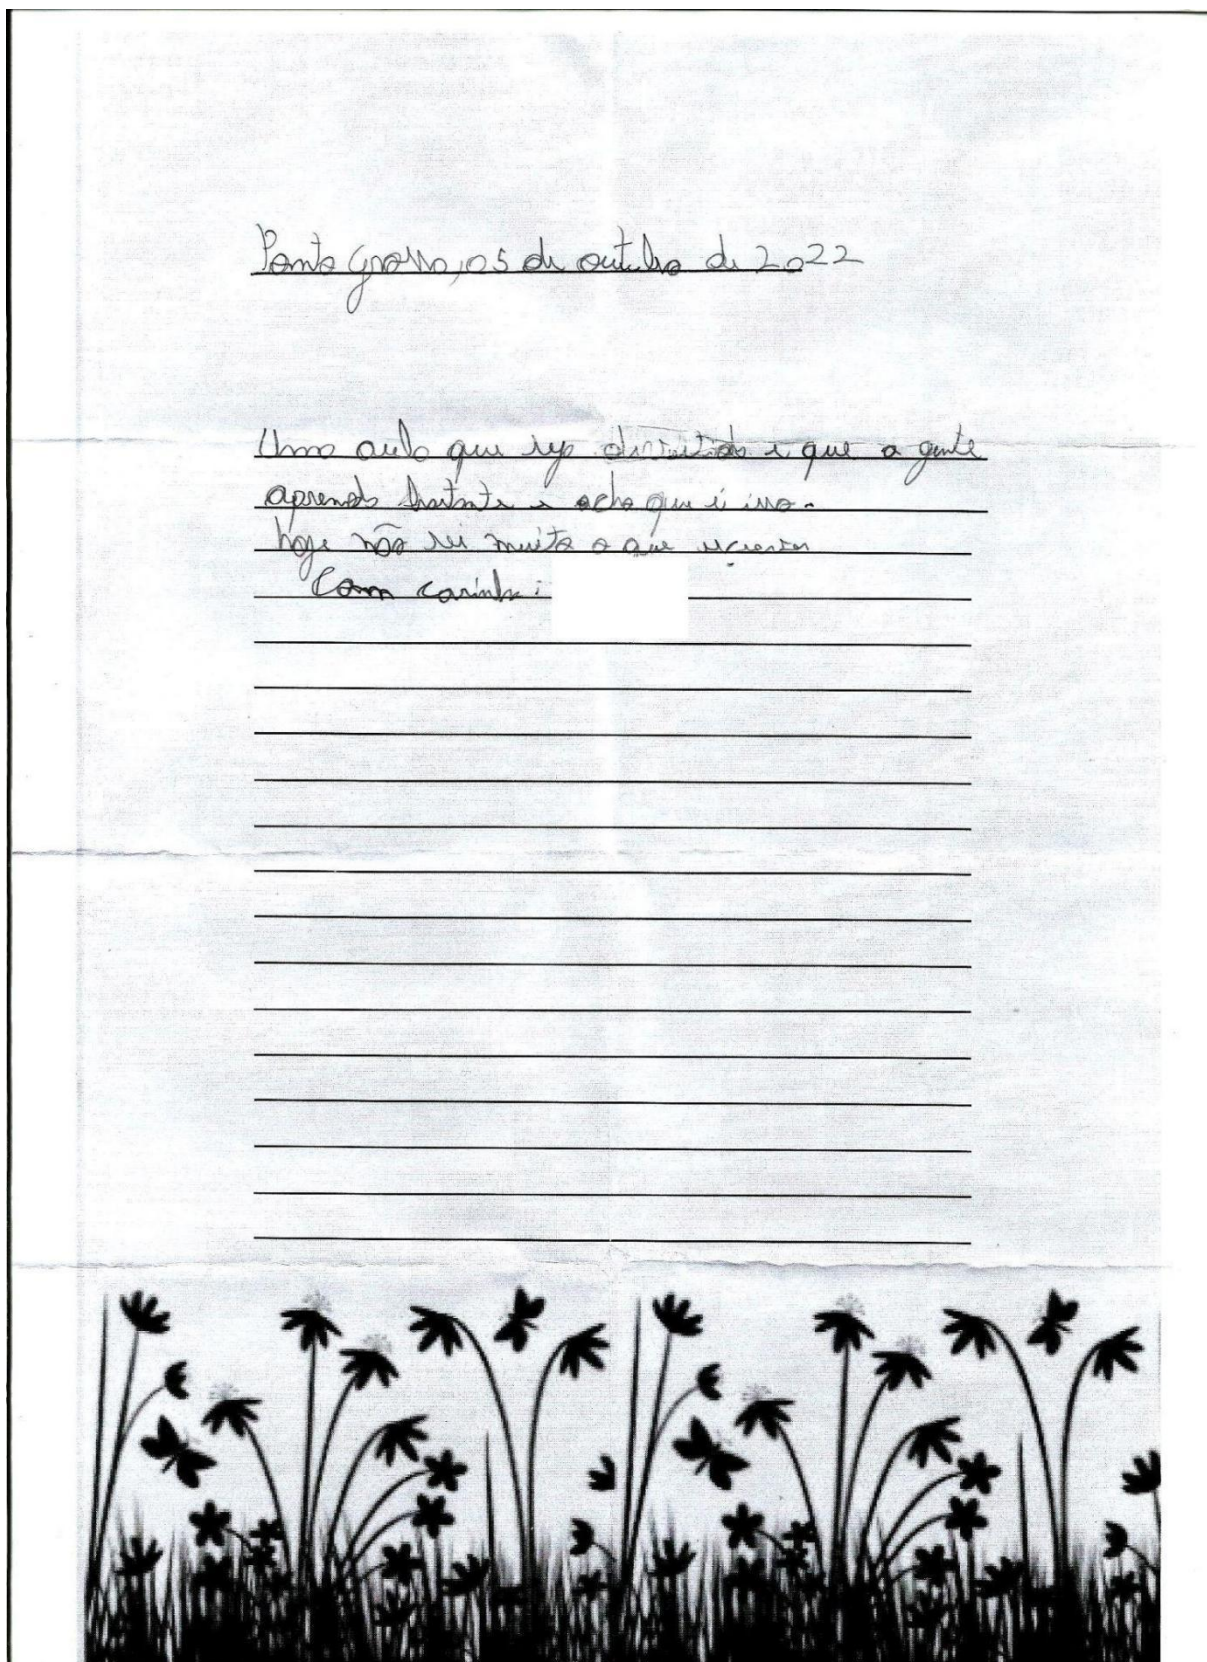 Ponta Grossa, 05 de outubro de 2022
Uma aula que seja divertida e que a gente
aprenda bastante e acho que é isso.
hoje não sei muito o que escrever
Com carinho: